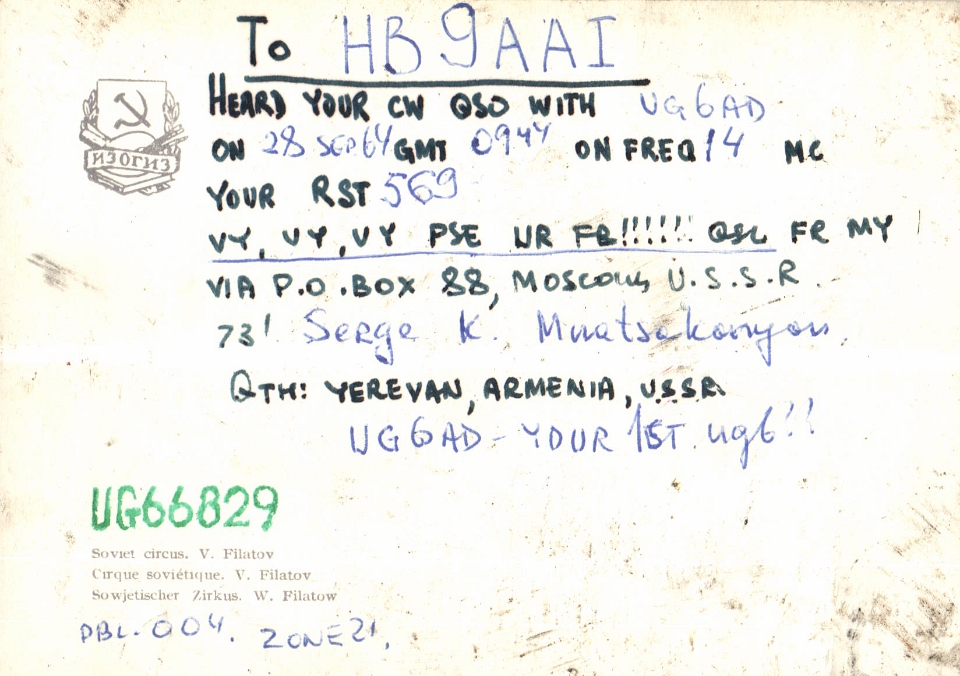 To HB9AAI
HEARD YOUR CW QSO WITH UG6AD
ON 28 SEP 64 GMT 0944 ON FREQ 14 MC
YOUR RST 569
VY, VY, VY PSE UR FB!!!!!! QSL FR MY
VIA P.O.BOX 88, MOSCOW, U.S.S.R.
73! Serge K. Mnatsakanyan.
QTH: YEREVAN, ARMENIA, U.S.S.R.
UG6AD - YOUR 1ST. ug6!!
ИЗОГИЗ
UG66829
Soviet circus. V. Filatov
Cirque soviétique. V. Filatov
Sowjetischer Zirkus. W. Filatow
PBL-004. ZONE 21.